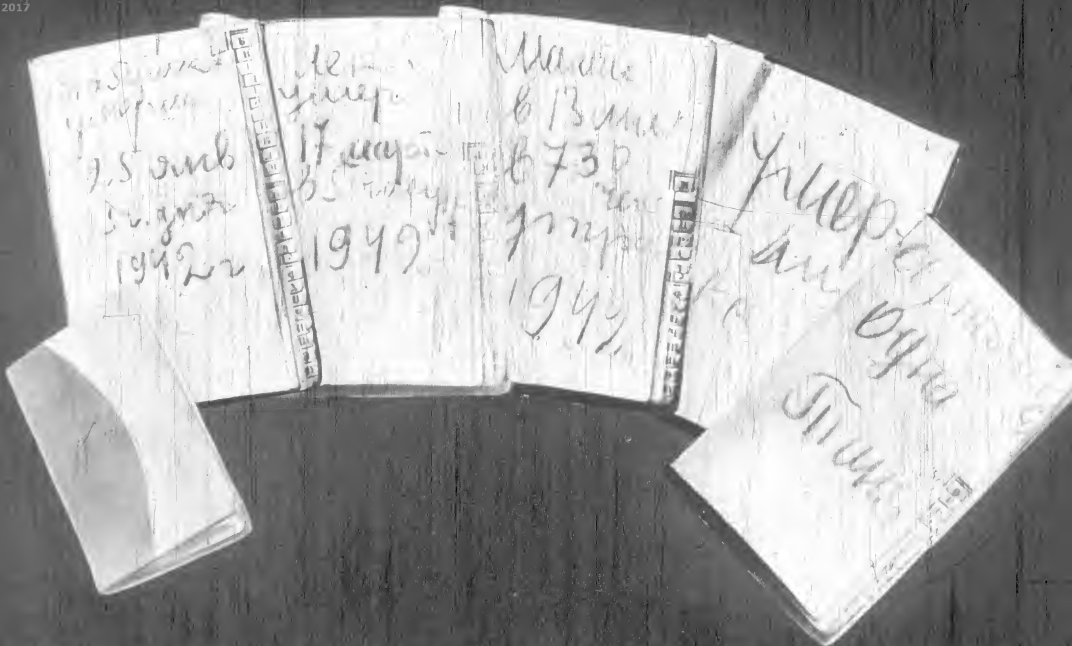 2017
Бабушка
умерла
25 янв
3ч. дня
1942 г
Лека
умер
17 марта
в 5
1942 г
Мама
в 13 мая
в 7 30
час
утра
1942
Умерли
одна
Таня